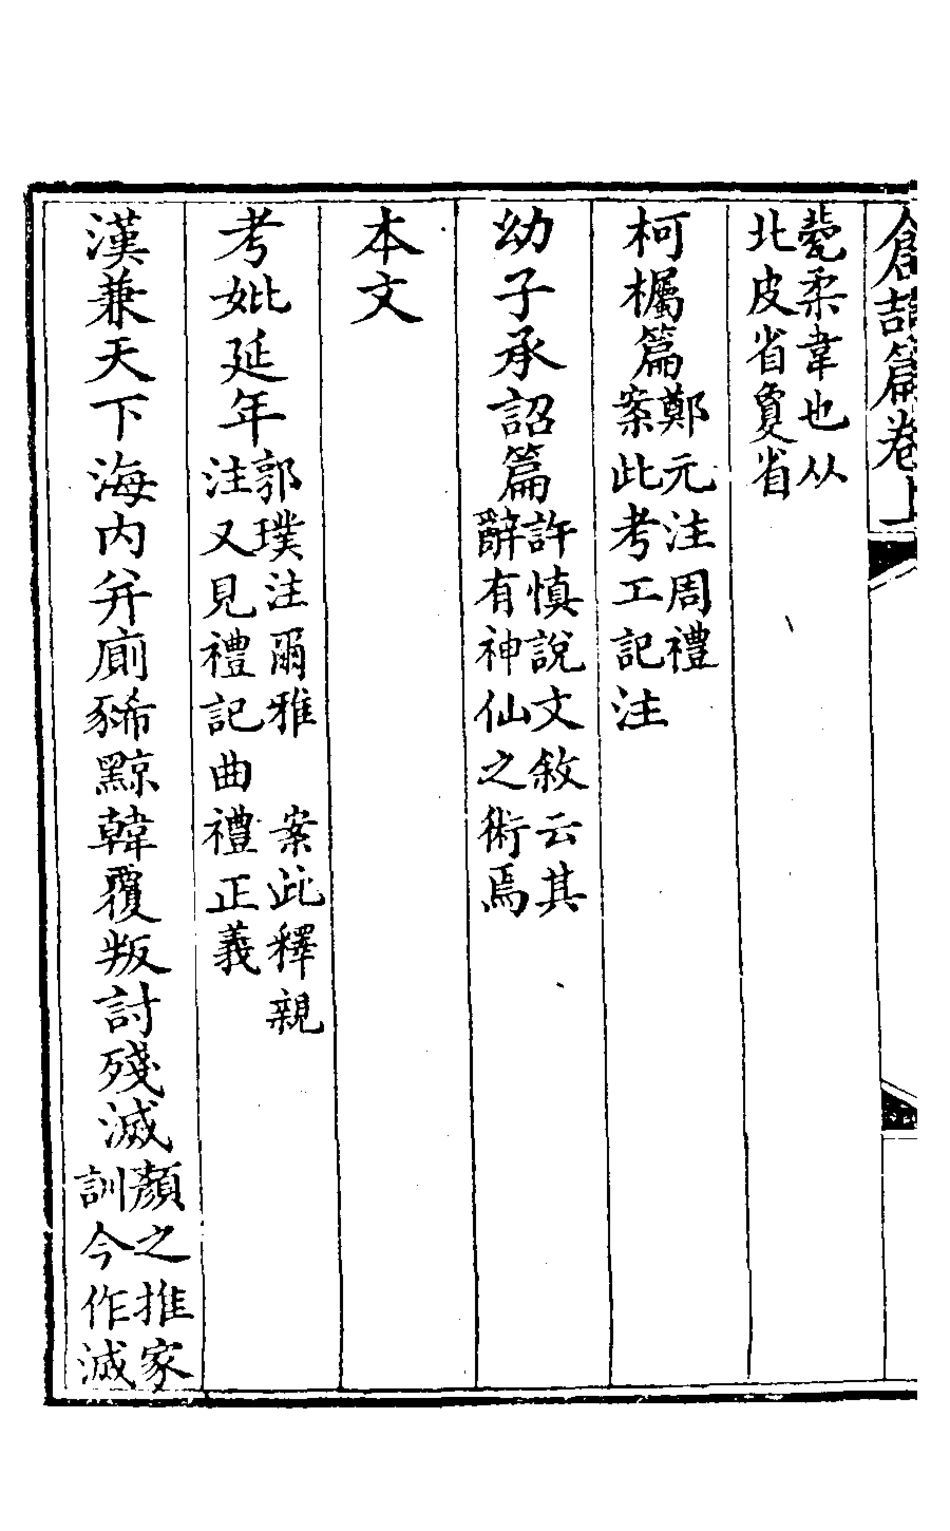 倉頡篇卷上
㼱柔韋也从
北皮省夐省
柯欘篇鄭元注周禮
案此考工記注
幼子承詔篇許慎說文敘云其
辭有神仙之術焉
本文
考妣延年郭璞注爾雅　案此釋親
注又見禮記曲禮正義
漢兼天下海内并廁豨黥韓覆叛討殘滅顏之推家
訓今作滅